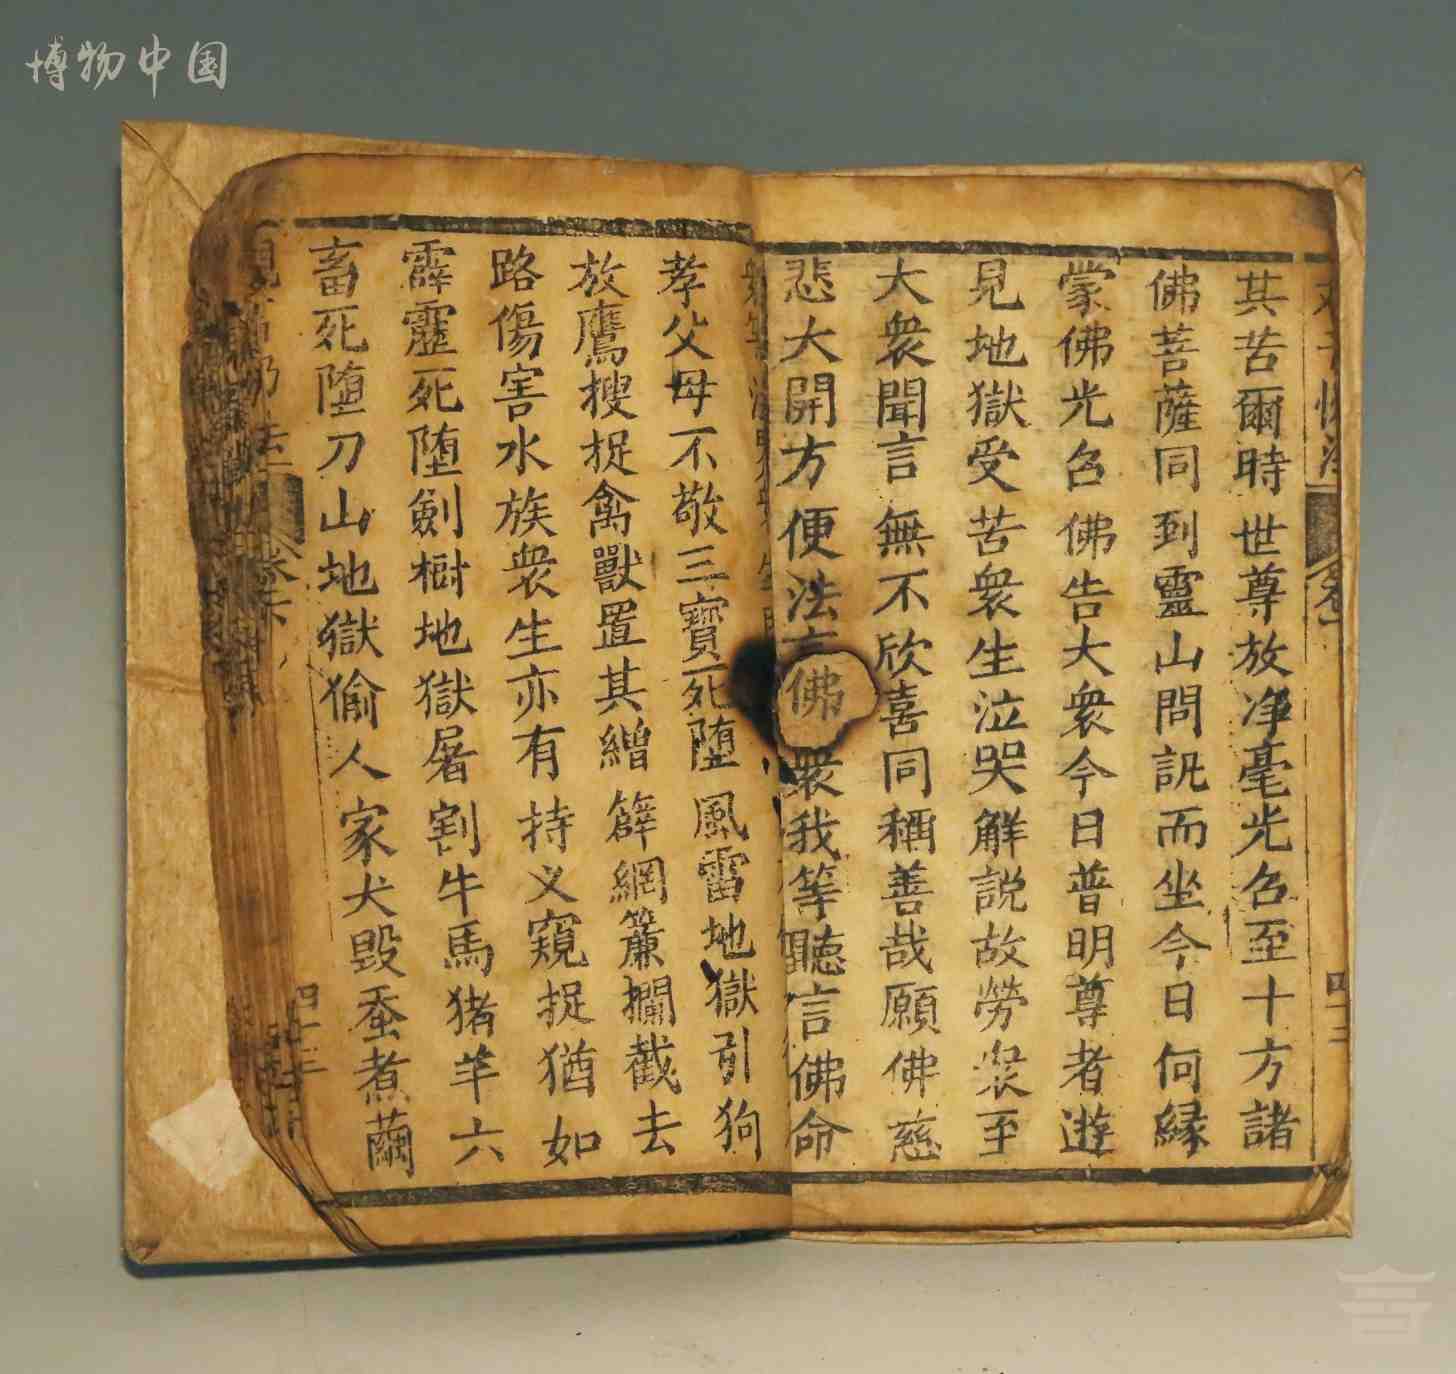 博物中国
其苦爾時世尊放净毫光召至十方諸
佛菩薩同到靈山問訊而坐今日何緣
蒙佛光召佛告大衆今日普明尊者遊
見地獄受苦衆生泣哭解説故勞衆至
大衆聞言無不欣喜同稱善哉願佛慈
悲大開方便法 佛 衆我等聽言佛命
孝父母不敬三寶死墮風雷地獄引狗
放鷹搜捉禽獸置其繒簳網簾攔截去
路傷害水族衆生亦有持义窺捉猶如
霹靂死墮劍樹地獄屠割牛馬猪羊六
畜死墮刀山地獄偷人家犬毁蚕煮繭
四十三